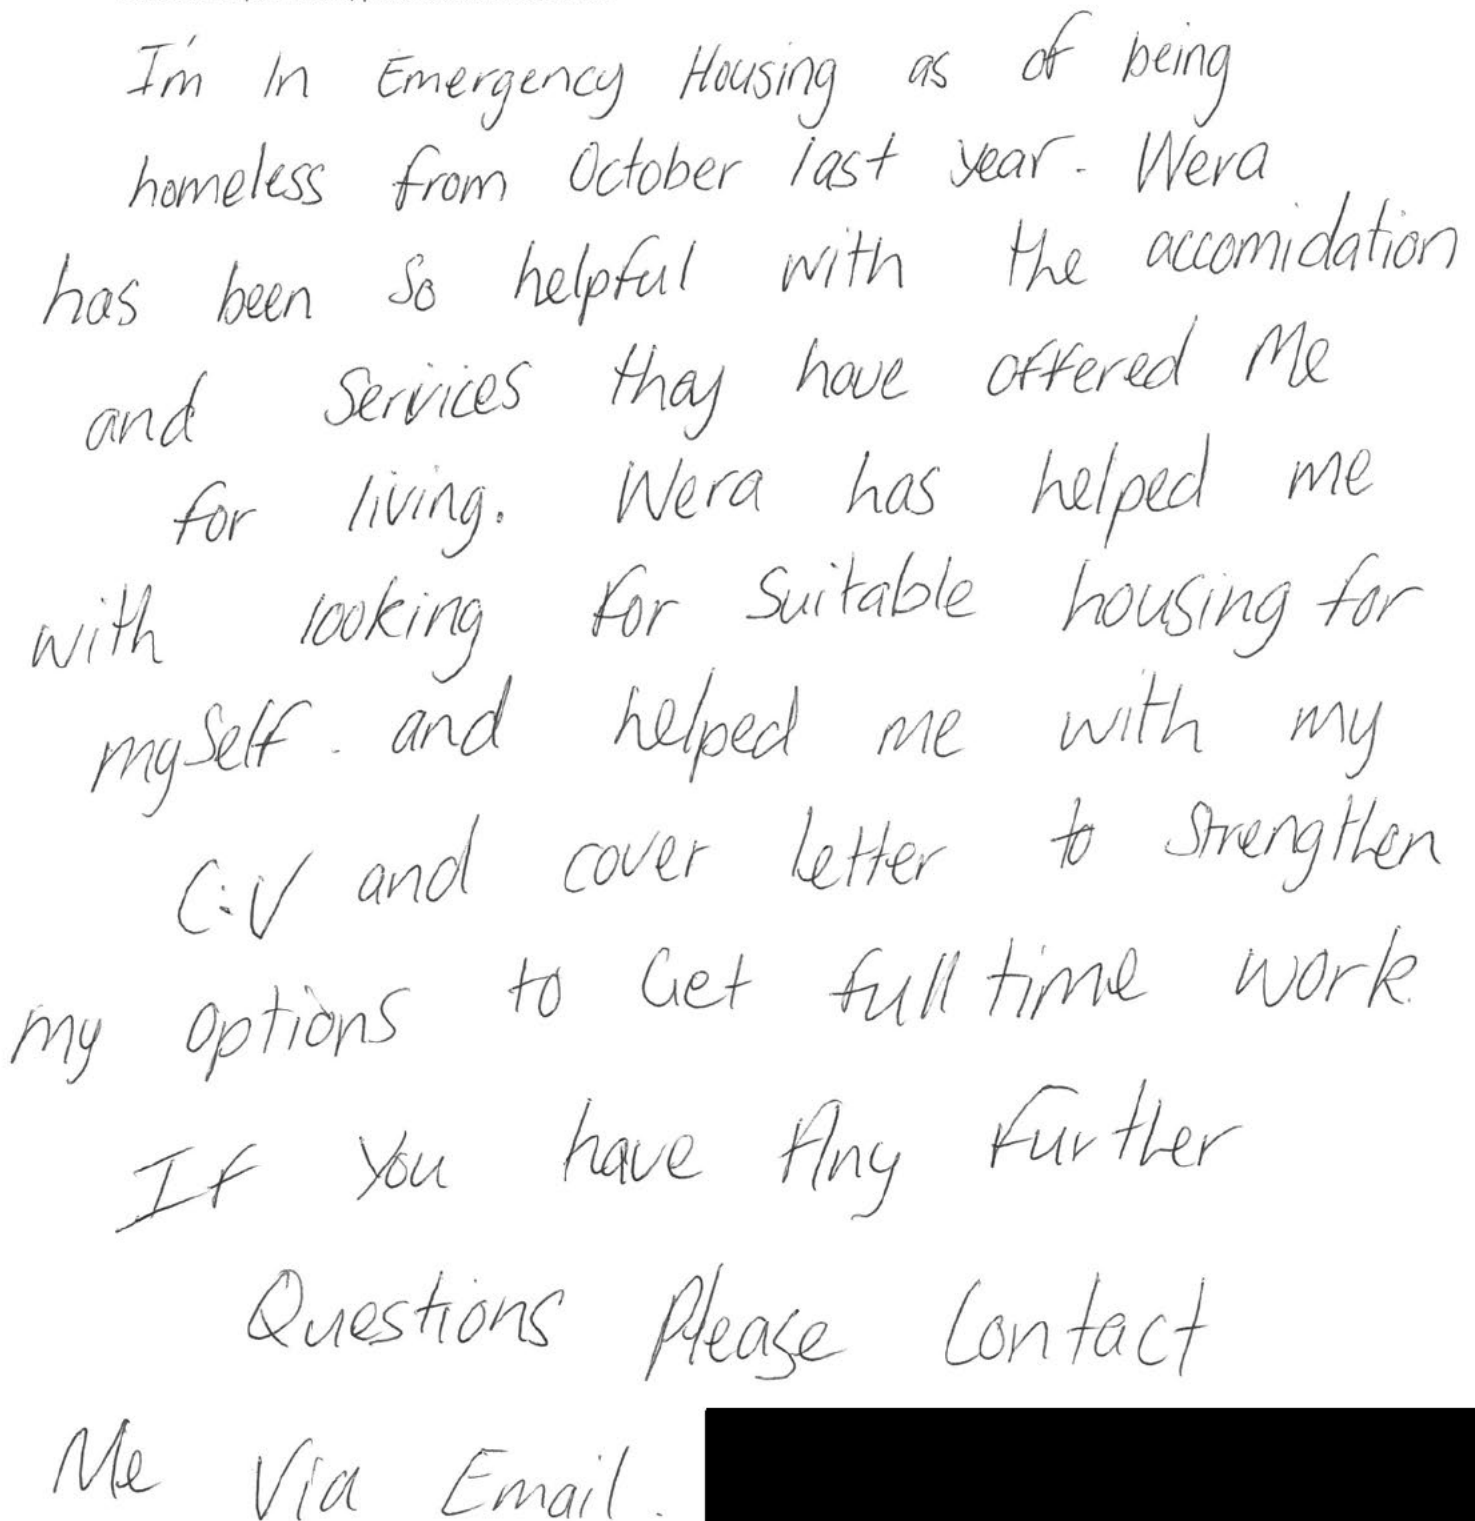 I'm In Emergency Housing as of being
homeless from October last year. Wera
has been so helpful with the accomidation
and Services thay have offered Me
for living. Wera has helped me
with looking for Suitable housing for
mySelf. and helped me with my
C.V and cover letter to Strengthen
my options to Get full time work.
If You have Any Further
Questions Please Contact
Me Via Email.